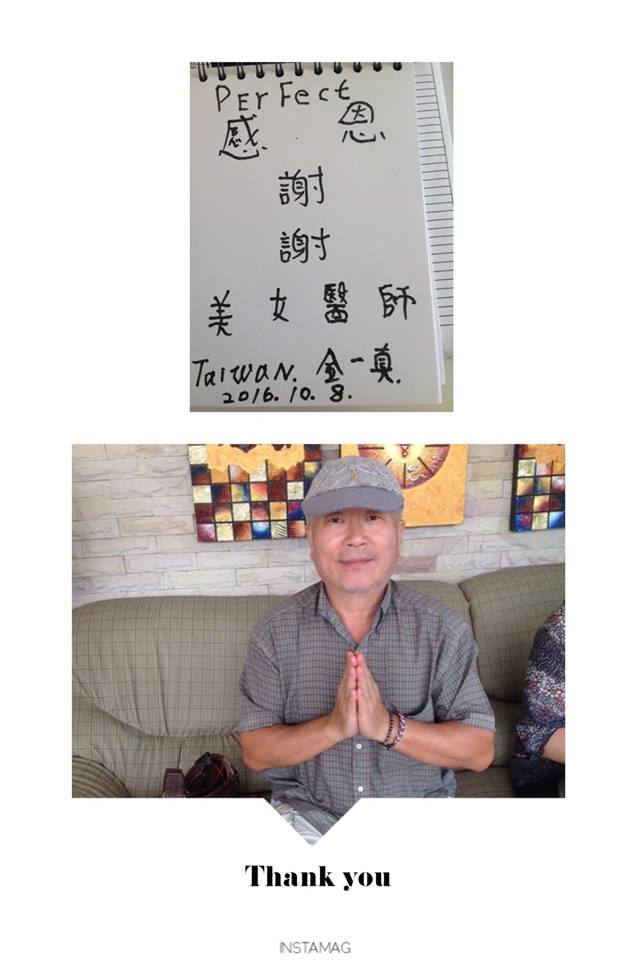 PErFect
感 恩
謝
謝
美 女 醫 師
TaiWaN. 金一真.
2016. 10. 8.
Thank you
INSTAMAG